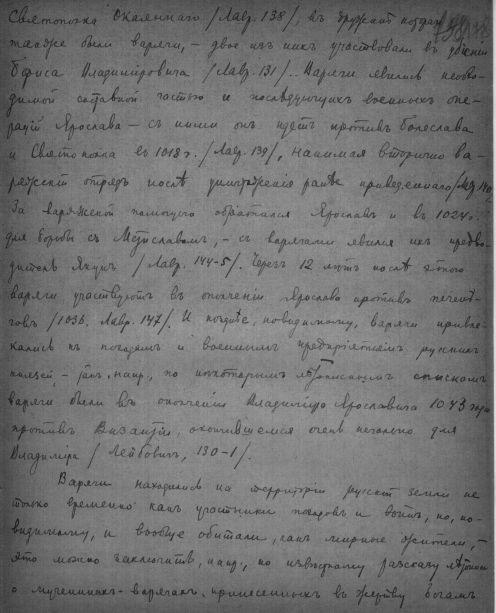 Святополка Окаяннаго /Лавр. 138/; въ дружинѣ
также были варяги, – двое изъ нихъ участвовали въ убіеніи
Бориса Владиміровича /Лавр. 131/. Варяги явились необхо-
димой составной частью и послѣдующихъ военныхъ опе-
рацій Ярослава – съ ними онъ идетъ противъ Болеслава
и Святополка въ 1018 г. /Лавр. 139/, нанимая вторично ва-
ряжскій отрядъ послѣ уничтоженія ранѣе приведеннаго /Лавр. 140/
За варяжской помощью обратился Ярославъ и въ 1024 г.
для борьбы съ Мстиславомъ, – съ варягами явился ихъ предво-
дитель Якунъ /Лавр. 144-5/. Черезъ 12 лѣтъ послѣ этого
варяги участвуютъ въ ополченіи Ярослава противъ печенѣ-
говъ /1036. Лавр. 147/. И позднѣе, повидимому, варяги привле-
кались къ походамъ и военнымъ предпріятіямъ русскихъ
князей, – такъ, напр., по нѣкоторымъ лѣтописнымъ спискамъ
варяги были въ ополченіи Владиміра Ярославича 1043 года
противъ Византіи, окончившемся очень печально для
Владиміра /Лейбовичъ, 130-1/.
Варяги находились на территоріи русской земли не
только временно какъ участники походовъ и войнъ, но, по-
видимому, и вообще обитали, какъ мирные жители, –
это можно заключить, напр., по извѣстному разсказу лѣтописи
о мученикахъ-варягахъ, принесенныхъ въ жертву богамъ